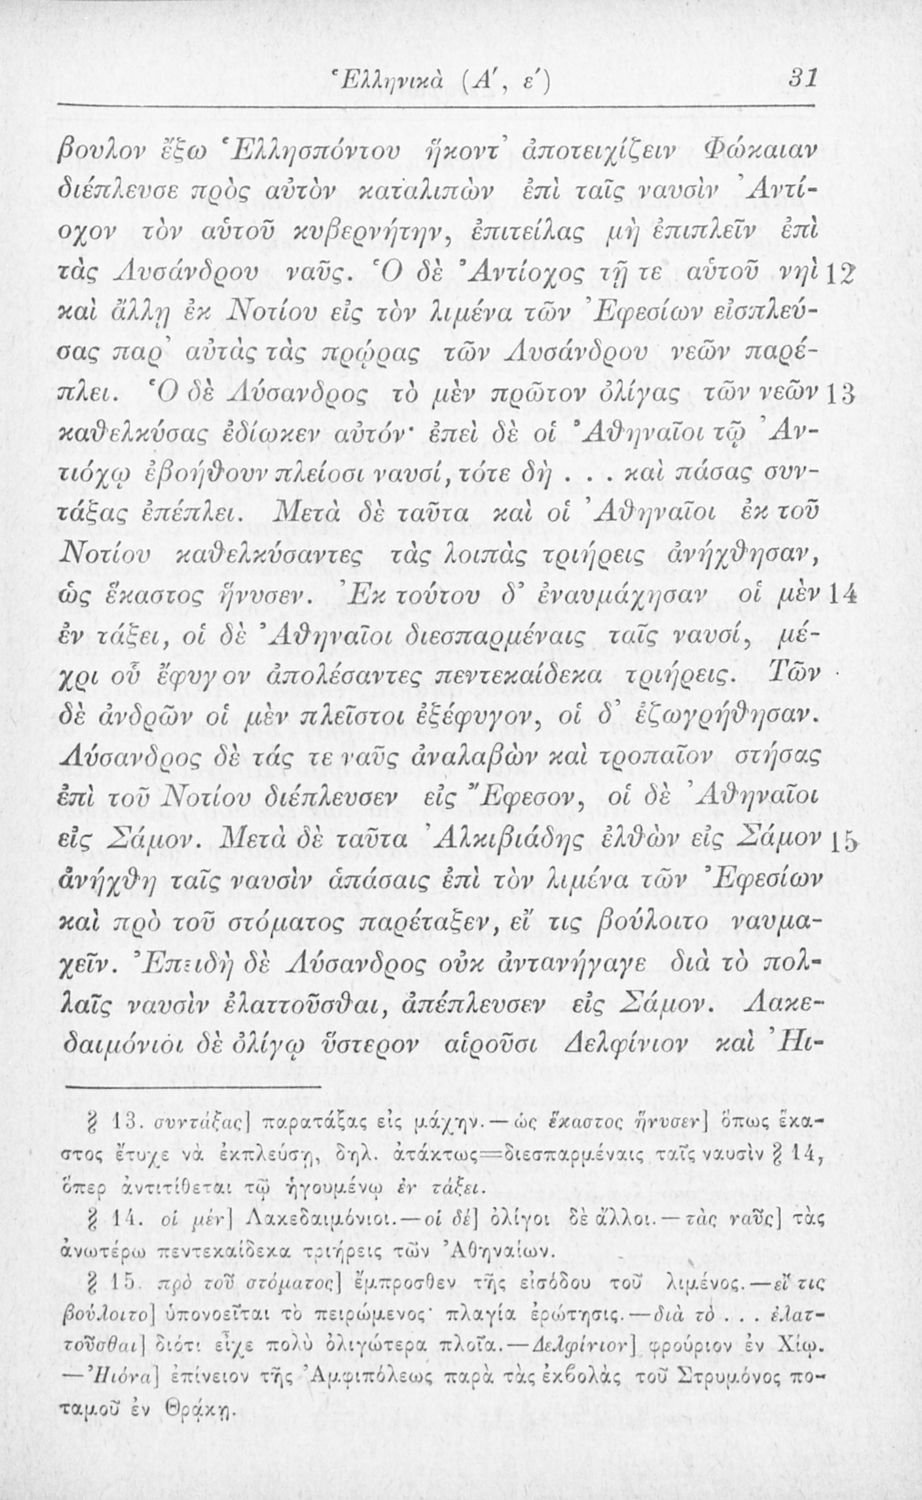 Ἑλληνικὰ (Α΄, ε΄) 31
βουλον ἔξω Ἑλλησπόντου ἥκοντ᾽ ἀποτειχίζειν Φώκαιαν
διέπλευσε πρὸς αὐτὸν καταλιπὼν ἐπὶ ταῖς ναυσὶν Ἀντί-
οχον τὸν αὑτοῦ κυβερνήτην, ἐπιτείλας μὴ ἐπιπλεῖν ἐπὶ
τὰς Λυσάνδρου ναῦς. Ὁ δὲ Ἀντίοχος τῇ τε αὑτοῦ νηὶ 12
καὶ ἄλλῃ ἐκ Νοτίου εἰς τὸν λιμένα τῶν Ἐφεσίων εἰσπλεύ-
σας παρ᾽ αὐτὰς τὰς πρῴρας τῶν Λυσάνδρου νεῶν παρέ-
πλει. Ὁ δὲ Λύσανδρος τὸ μὲν πρῶτον ὀλίγας τῶν νεῶν 13
καθελκύσας ἐδίωκεν αὐτόν· ἐπεὶ δὲ οἱ Ἀθηναῖοι τῷ Ἀν-
τιόχῳ ἐβοήθουν πλείοσι ναυσί, τότε δὴ . . . καὶ πάσας συν-
τάξας ἐπέπλει. Μετὰ δὲ ταῦτα καὶ οἱ Ἀθηναῖοι ἐκ τοῦ
Νοτίου καθελκύσαντες τὰς λοιπὰς τριήρεις ἀνήχθησαν,
ὡς ἕκαστος ἤνυσεν. Ἐκ τούτου δ᾽ ἐναυμάχησαν οἱ μὲν 14
ἐν τάξει, οἱ δὲ Ἀθηναῖοι διεσπαρμέναις ταῖς ναυσί, μέ-
χρι οὗ ἔφυγον ἀπολέσαντες πεντεκαίδεκα τριήρεις. Τῶν
δὲ ἀνδρῶν οἱ μὲν πλεῖστοι ἐξέφυγον, οἱ δ᾽ ἐζωγρήθησαν.
Λύσανδρος δὲ τάς τε ναῦς ἀναλαβὼν καὶ τροπαῖον στήσας
ἐπὶ τοῦ Νοτίου διέπλευσεν εἰς Ἔφεσον, οἱ δὲ Ἀθηναῖοι
εἰς Σάμον. Μετὰ δὲ ταῦτα Ἀλκιβιάδης ἐλθὼν εἰς Σάμον 15
ἀνήχθη ταῖς ναυσὶν ἁπάσαις ἐπὶ τὸν λιμένα τῶν Ἐφεσίων
καὶ πρὸ τοῦ στόματος παρέταξεν, εἴ τις βούλοιτο ναυμα-
χεῖν. Ἐπειδὴ δὲ Λύσανδρος οὐκ ἀντανήγαγε διὰ τὸ πολ-
λαῖς ναυσὶν ἐλαττοῦσθαι, ἀπέπλευσεν εἰς Σάμον. Λακε-
δαιμόνιοι δὲ ὀλίγῳ ὕστερον αἱροῦσι Δελφίνιον καὶ Ἠι-
§ 13. συντάξας] παρατάξας εἰς μάχην. — ὡς ἕκαστος ἤνυσεν] ὅπως ἕκα-
στος ἔτυχε νὰ ἐκπλεύσῃ, δηλ. ἀτάκτως=διεσπαρμέναις ταῖς ναυσὶν § 14,
ὅπερ ἀντιτίθεται τῷ ἡγουμένῳ ἐν τάξει.
§ 14. οἱ μὲν] Λακεδαιμόνιοι. — οἱ δὲ] ὀλίγοι δὲ ἄλλοι. — τὰς ναῦς] τὰς
ἀνωτέρω πεντεκαίδεκα τριήρεις τῶν Ἀθηναίων.
§ 15. πρὸ τοῦ στόματος] ἔμπροσθεν τῆς εἰσόδου τοῦ λιμένος. — εἴ τις
βούλοιτο] ὑπονοεῖται τὸ πειρώμενος· πλαγία ἐρώτησις. — διὰ τὸ . . . ἐλατ-
τοῦσθαι] διότι εἶχε πολὺ ὀλιγώτερα πλοῖα. — Δελφίνιον] φρούριον ἐν Χίῳ.
— Ἠιόνα] ἐπίνειον τῆς Ἀμφιπόλεως παρὰ τὰς ἐκβολὰς τοῦ Στρυμόνος πο-
ταμοῦ ἐν Θράκῃ.